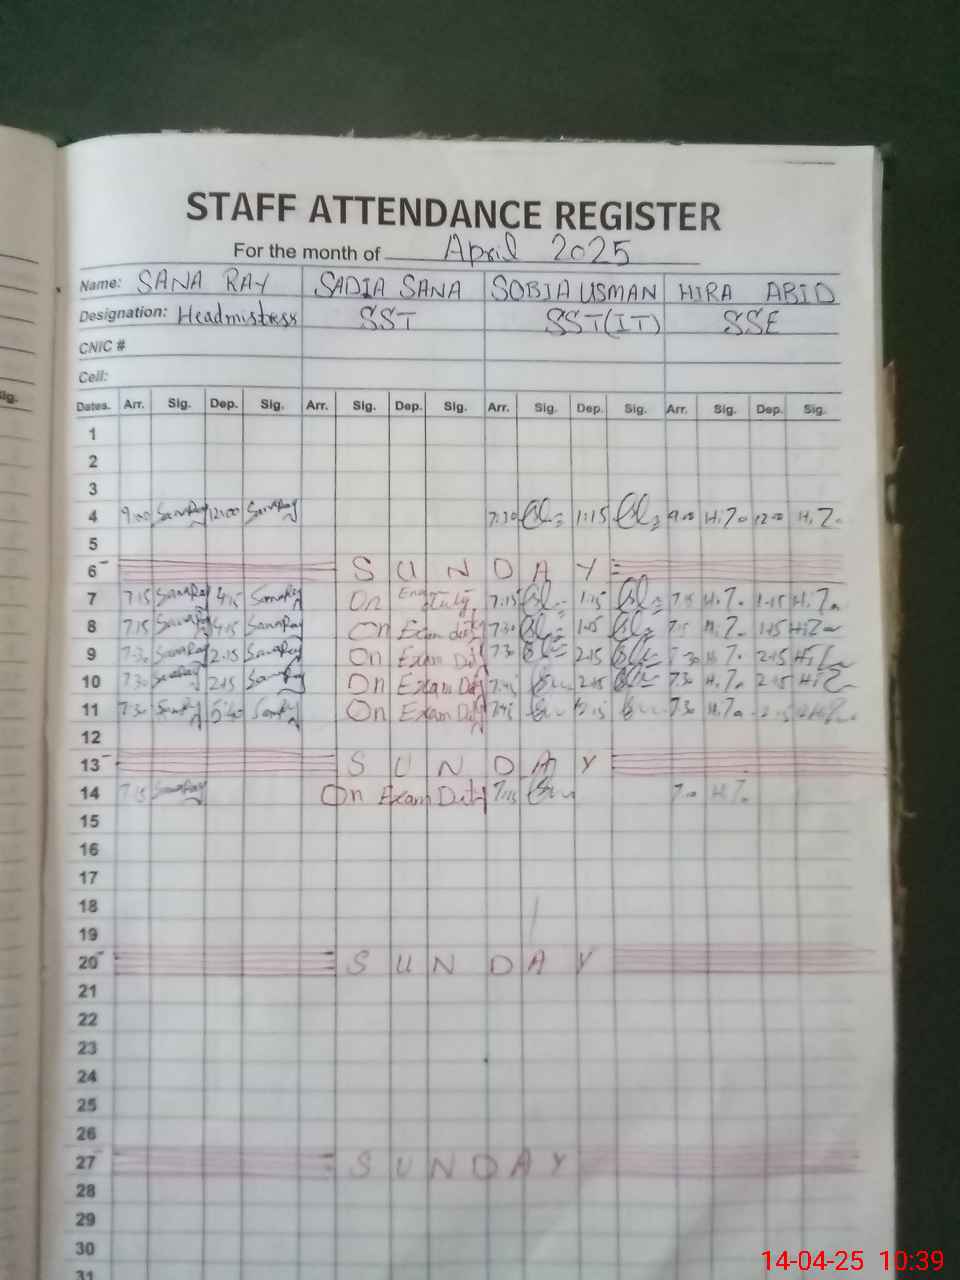 STAFF ATTENDANCE REGISTER
For the month of April 2025
Name: SANA RAY SADIA SANA SOBIA USMAN HIRA ABID
Designation: Headmistress SST SST(IT) SSE
CNIC #
Cell:
Sig. Dates. Arr. Sig. Dep. Sig. Arr. Sig. Dep. Sig. Arr. Sig. Dep. Sig. Arr. Sig. Dep. Sig.
1
2
3
4 9:00 SanaRay 12:00 SanaRay 7:30 1:15 9:00 H.Z. 12:00 H.Z.
5
6 SUNDAY
7 7:15 SanaRay 4:15 SanaRay On Duty 7:15 1:15 7:15 H.Z. 1:15 H.Z.
8 7:15 SanaRay 4:15 SanaRay On Exam duty 7:30 H.Z. 1:15 H.Z.
9 7:30 SanaRay 2:15 SanaRay On Exam Duty 7:30 2:15 2:15
10 7:30 SanaRay 2:15 SanaRay On Exam Duty 7:45 2:15 7:30 H.Z. 2:15 H.Z.
11 7:30 On Exam Duty 7:45 2:15 7:30 H.Z.
12
13 SUNDAY
14 7:15 SanaRay On Exam Duty 7:15 H.Z.
15
16
17
18
19
20 SUNDAY
21
22
23
24
25
26
27 SUNDAY
28
29
30
31
14-04-25 10:39